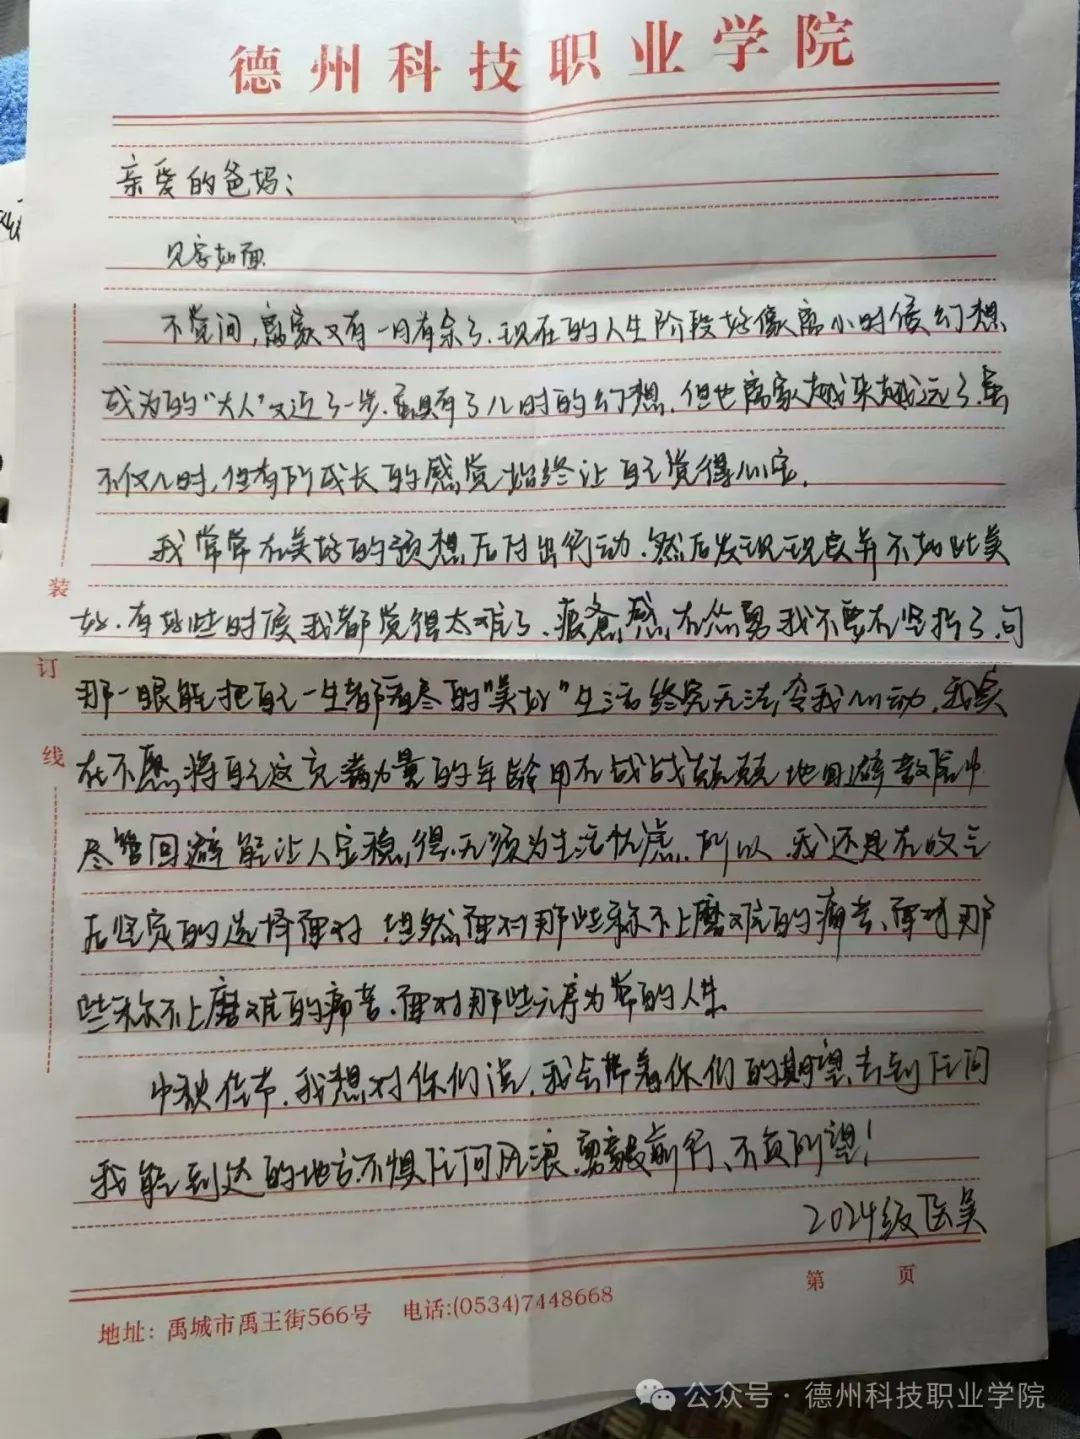 德州科技职业学院
亲爱的爸妈：
见字如面
不觉间，离家又有一月有余了．现在的人生阶段好像离小时候幻想
成为的“大人”又近了一步．虽具有了儿时的幻想．但也离家越来越远了．虽
不仅儿时，但有所成长的感觉始终让自己觉得心安．
我常常在美好的预想后付出行动．然后发现现实并不如此美
好．有好些时候我都觉得太难了、疲惫感在怂恿我不要在坚持了．可
那一眼能把自己一生都看尽的“美好”生活终究无法令我心动．我实
在不愿将自己这充满力量的年龄用在战战兢兢地回避教
尽管回避能让人安稳，得无须为生活忧虑．所以．我还是在
后坚定的选择面对．坦然面对那些称不上磨难的痛苦、面对那
些称不上磨难的痛苦．面对那些为常的人生
中秋佳节，我想对你们说，我会带着你们的期望去到任何
我能到达的地方．不惧任何风浪．勇毅前行、不负所望！
2024级医美
装
订
线
第 页
地址：禹城市禹王街566号 电话:(0534)7448668
公众号·德州科技职业学院